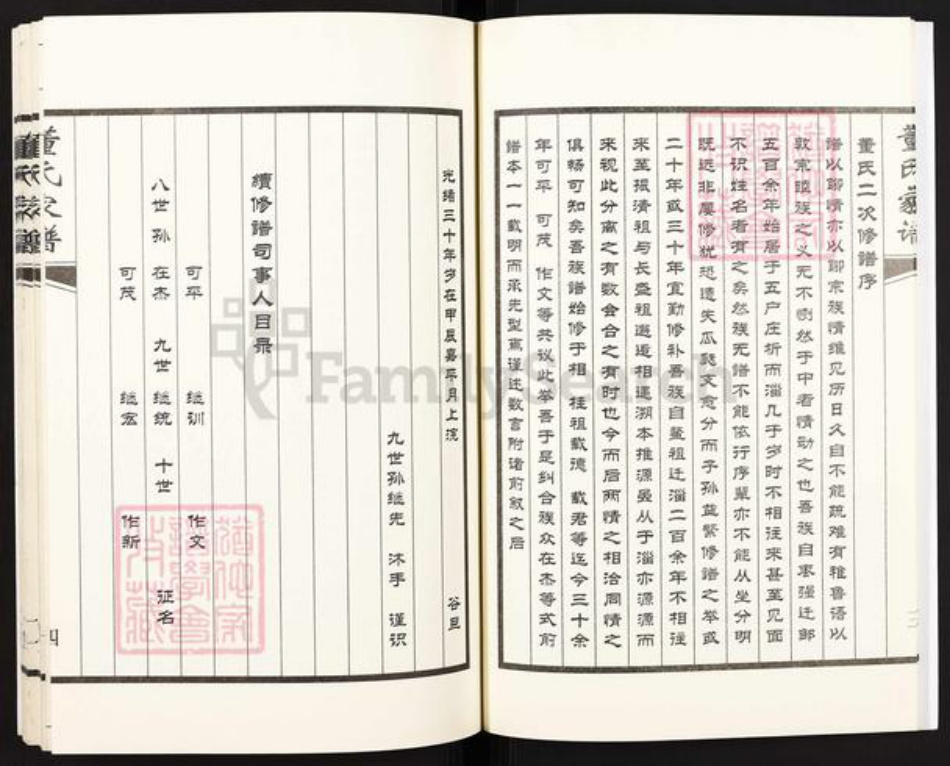 董氏家谱
董氏二次修谱序
谱以聊情亦以聊宗族情维见历日久自不能疏难有稚鲁语以
敦宗睦族之义无不恻然于中者情动之也吾族自枣强迁邹
五百余年始居于五户庄析而淄几于岁时不相往来甚至见面
不识姓名者有之矣然族无谱不能依行序辈亦不能从坐分明
既远非屡修犹恐遗失瓜瓞支愈分而子孙益繁修谱之举或
二十年或三十年宜勤修补吾族自鳌祖迁淄二百余年不相往
来至振清祖与长盛祖邂逅相遇溯本推源虽从于淄亦源源而
来视此分离之有数会合之有时也今而后两情之相洽同情之
俱畅可知矣吾族谱始修于相 桂祖载德 载君等迄今三十余
年可平 可茂 作文等共议此举吾于是纠合族众在杰等式前
谱本一一载明而承先型焉谨述数言附诸前叙之后
光绪三十年岁在甲辰嘉平月上浣 谷旦
九世孙继先 沐手 谨识
續修谱司事人目录
可平 继训 作文
八世孙 在杰 九世 继统 十世 征名
可茂 继宏 作新
四
董氏家谱
FamilySearch